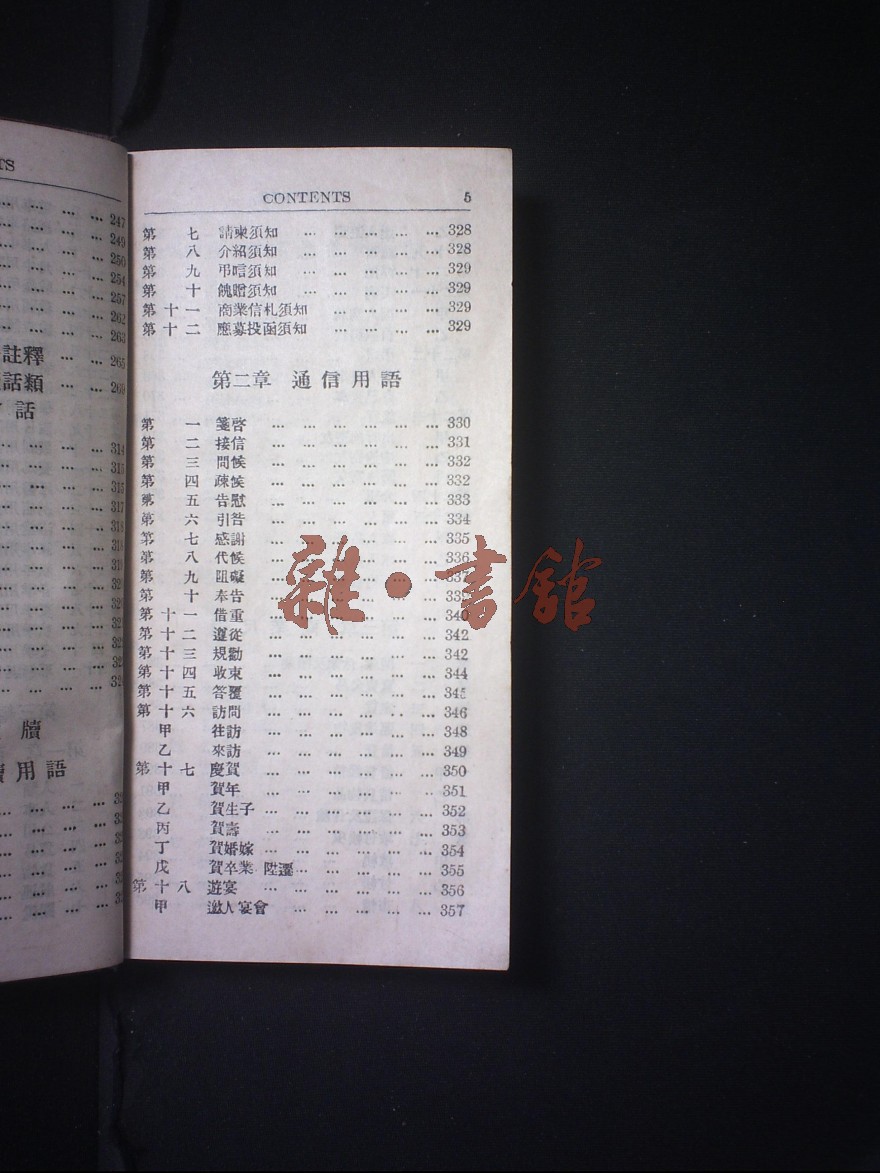 TS
... ... ... 247
... ... ... 249
... ... ... 250
... ... ... 254
... ... ... 257
... ... ... 262
... ... ... 263
註釋 ... ... 265
話類 ... ... 269
話
... ... ... 314
... ... ... 315
... ... ... 317
牘
用語
CONTENTS 5
第七 請柬須知 ... ... ... ... ... 328
第八 介紹須知 ... ... ... ... ... 328
第九 弔唁須知 ... ... ... ... ... 329
第十 餽贈須知 ... ... ... ... ... 329
第十一 商業信札須知 ... ... ... ... 329
第十二 應募投函須知 ... ... ... ... 329
第二章 通信用語
第一 箋啓 ... ... ... ... ... ... 330
第二 接信 ... ... ... ... ... ... 331
第三 問候 ... ... ... ... ... ... 332
第四 疎候 ... ... ... ... ... ... 332
第五 告慰 ... ... ... ... ... ... 333
第六 引咎 ... ... ... ... ... ... 334
第七 感謝 ... ... ... ... ... ... 335
第八 代候 ... ... ... ... ... ... 336
第九 阻礙 ... ... ... ... ... ... 337
第十 奉告 ... ... ... ... ... ...
第十一 借重 ... ... ... ... ... ... 340
第十二 遵從 ... ... ... ... ... ... 342
第十三 規勸 ... ... ... ... ... ... 342
第十四 收束 ... ... ... ... ... ... 344
第十五 答覆 ... ... ... ... ... ... 345
第十六 訪問 ... ... ... ... ... ... 346
甲 往訪 ... ... ... ... ... ... 348
乙 來訪 ... ... ... ... ... ... 349
第十七 慶賀 ... ... ... ... ... ... 350
甲 賀年 ... ... ... ... ... ... 351
乙 賀生子 ... ... ... ... ... ... 352
丙 賀壽 ... ... ... ... ... ... 353
丁 賀婚嫁 ... ... ... ... ... ... 354
戊 賀卒業 陞遷 ... ... ... ... ... 355
第十八 遊宴 ... ... ... ... ... ... 356
甲 邀人宴會 ... ... ... ... ... 357
雜·書館